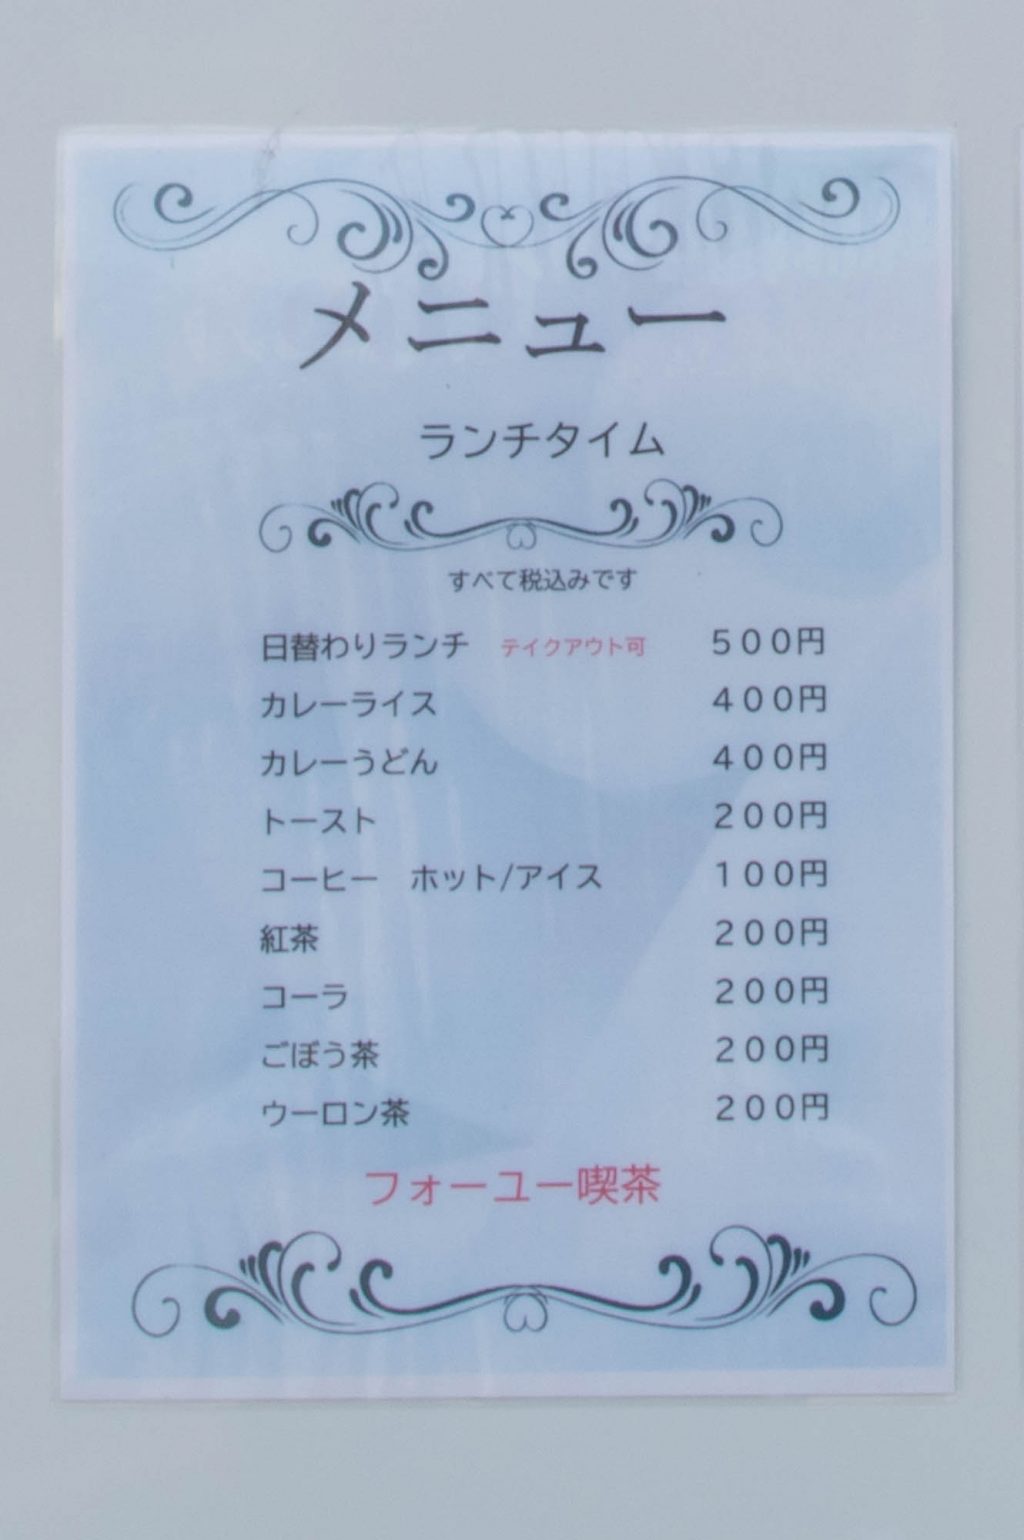 メニュー
ランチタイム
すべて税込みです
日替わりランチ　テイクアウト可　５００円
カレーライス　４００円
カレーうどん　４００円
トースト　２００円
コーヒー　ホット/アイス　１００円
紅茶　２００円
コーラ　２００円
ごぼう茶　２００円
ウーロン茶　２００円
フォーユー喫茶